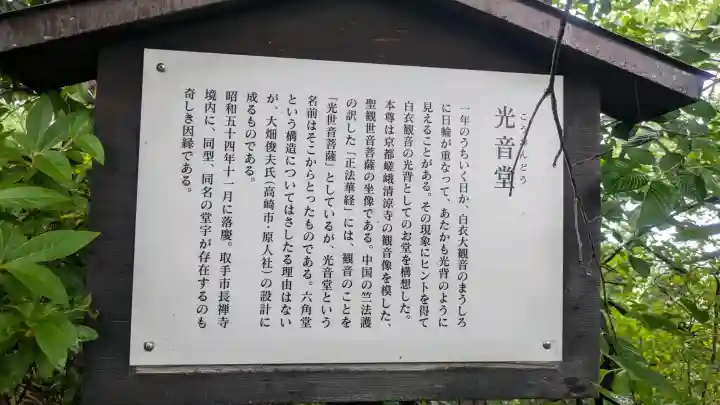 光音堂
こうおんどう
一年のうちいく日か、白衣大観音のまうしろ
に日輪が重なって、あたかも光背のように
見えることがある。その現象にヒントを得て
白衣観音の光背としてのお堂を構想した。
本尊は京都嵯峨清涼寺の観音像を模した、
聖観世音菩薩の坐像である。中国の竺法護
の訳した「正法華経」には、観音のことを
「光世音菩薩」としているが、光音堂という
名前はそこからとったものである。六角堂
という構造についてはさしたる理由はない
が、大畑俊夫氏(高崎市・原人社)の設計に
成るものである。
昭和五十四年十一月に落慶。取手市長禅寺
境内に、同型、同名の堂宇が存在するのも
奇しき因縁である。